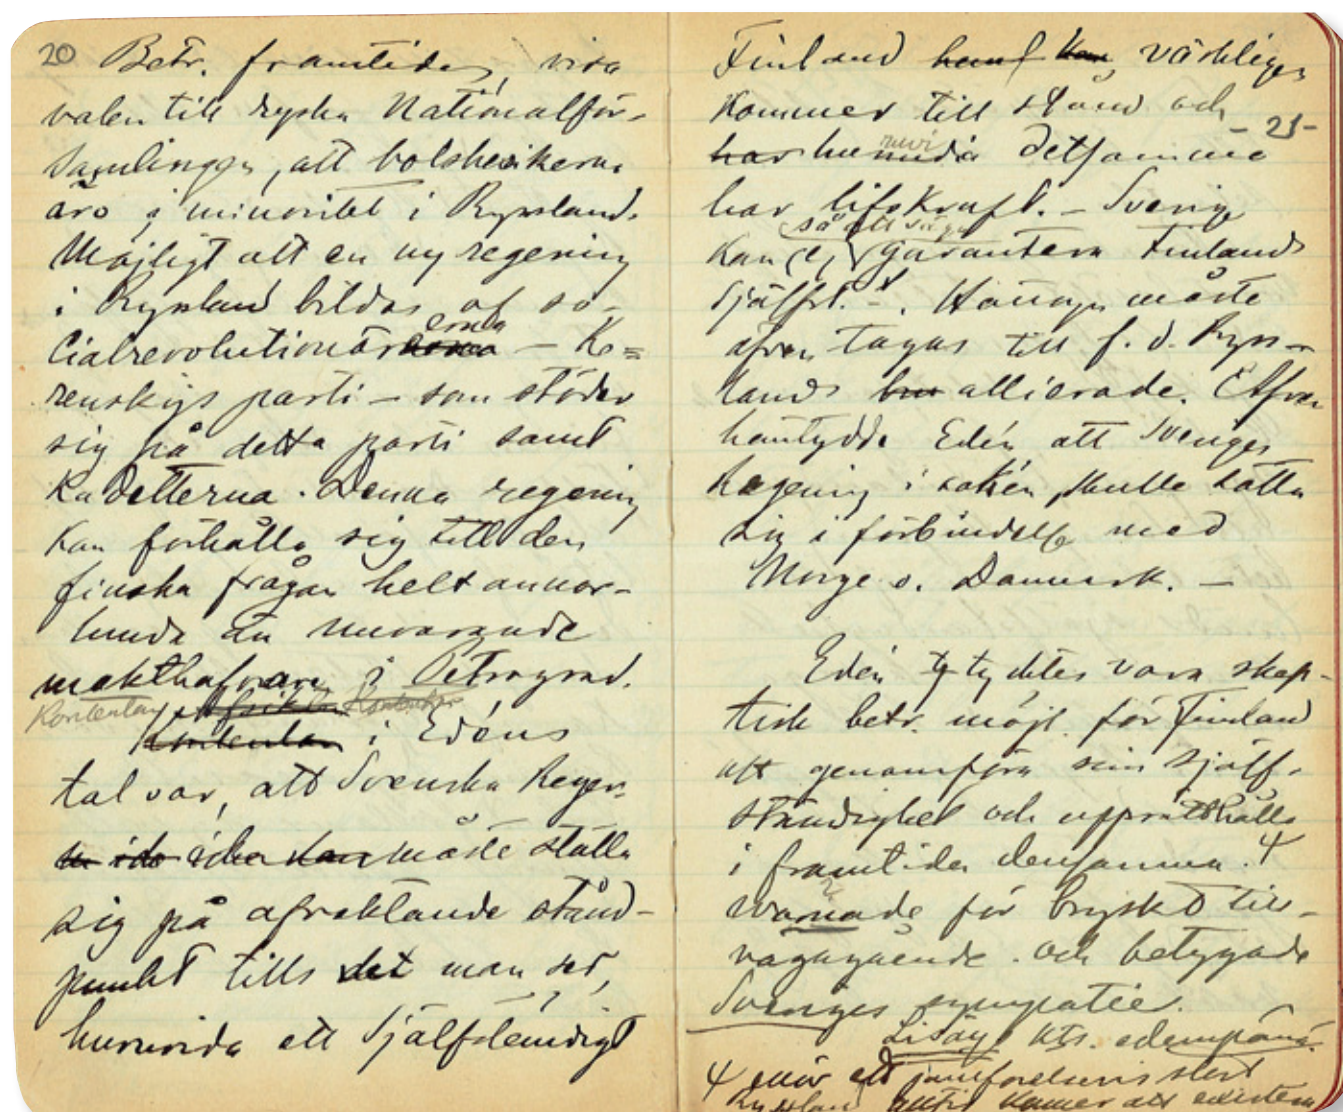 20 Betr. framtiden, visa
valen till ryska Nationalför-
samlingen, att bolshevikerna
äro i minoritet i Ryssland.
Möjligt att en ny regering
i Ryssland bildas af so-
cialrevolutionärerna – Ke=
renskijs parti – som stöder
sig på detta parti samt
Kadetterna. Denna regering
kan förhålla sig till den
finska frågan helt annor-
lunda än nuvarande
makthafvare i Petrograd.
Kontentan
Kontentan i Edéns
tal var, att Svenska Reger-
måste ställa
sig på afvaktande stånd-
punkt tills det man ser,
huruvida ett självständigt
Finland värkligen
kommer till stånd och
- 21-
har huruvida detsamma
har lifskraft. – Sverige
så att säga
kan ej garantera Finlands
självst. Hänsyn måste
äfven tagas till f. d. Ryss-
lands allierade. Äfven
häntydde Edén att Sveriges
Regering i saken skulle sätta
sig i förbindelse med
Norge o. Danmark. –
Edén tydtes vara skep-
tisk betr. möjl. för Finland
att genomföra sin själf-
ständighet och upprätthålla
i framtiden densamma. 4
Warnade för bryskt till-
vägagående och betygade
Sveriges sympatie.
4 ett jämförelsevis stort
Ryssland alltid kommer att existera